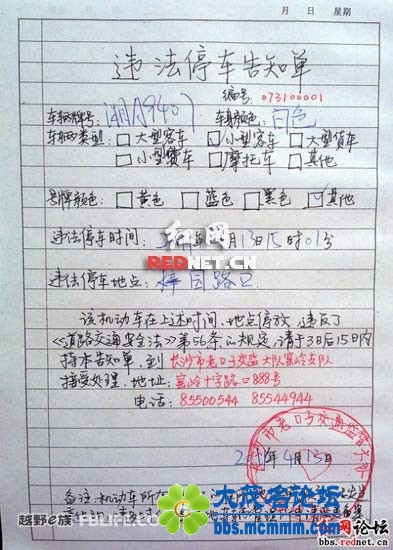 月 日 星期
违法停车告知单
编号: 073100001
车辆牌号: 湘A9407 车身颜色: 白色
车辆类型: □大型客车 □小型客车 □大型货车
□小型货车 □摩托车 □其他
号牌颜色: □黄色 □蓝色 □黑色 ☑其他
红网
REDNET.CN
违法停车时间: 年 月13日15时01分
违法停车地点: 梓园路口
该机动车在上述时间、地点停放,违反了
《道路交通安全法》第56条的规定,请于3日后15日内
持本告知单,到 长沙市老口子交监大队窝岭支队
接受处理。地址: 窝岭十字路口888号
电话: 85500544 85544944
市老口子交通监督大队
4月13日
备注: 机动车所有
越野e族 FBLIFE.COM
大茂名论坛
bbs.mscmmm.com
红网论坛
bbs.rednet.cn